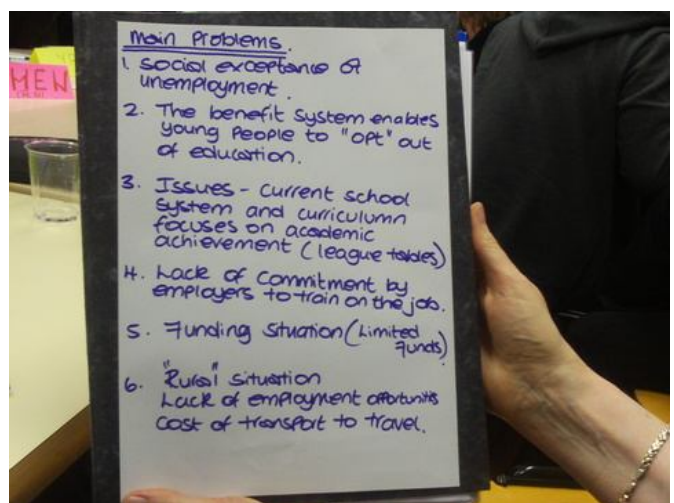 MEN
Main Problems.
1. Social exceptance of
unemployment.
2. The benefit system enables
young people to "opt" out
of education.
3. Issues - Current school
system and curriculumn
focuses on academic
achievement (league tables)
4. Lack of Commitment by
employers to train on the job.
5. Funding Situation (Limited
Funds)
6. "Rural" situation
Lack of employment opportunitis
cost of transport to travel.